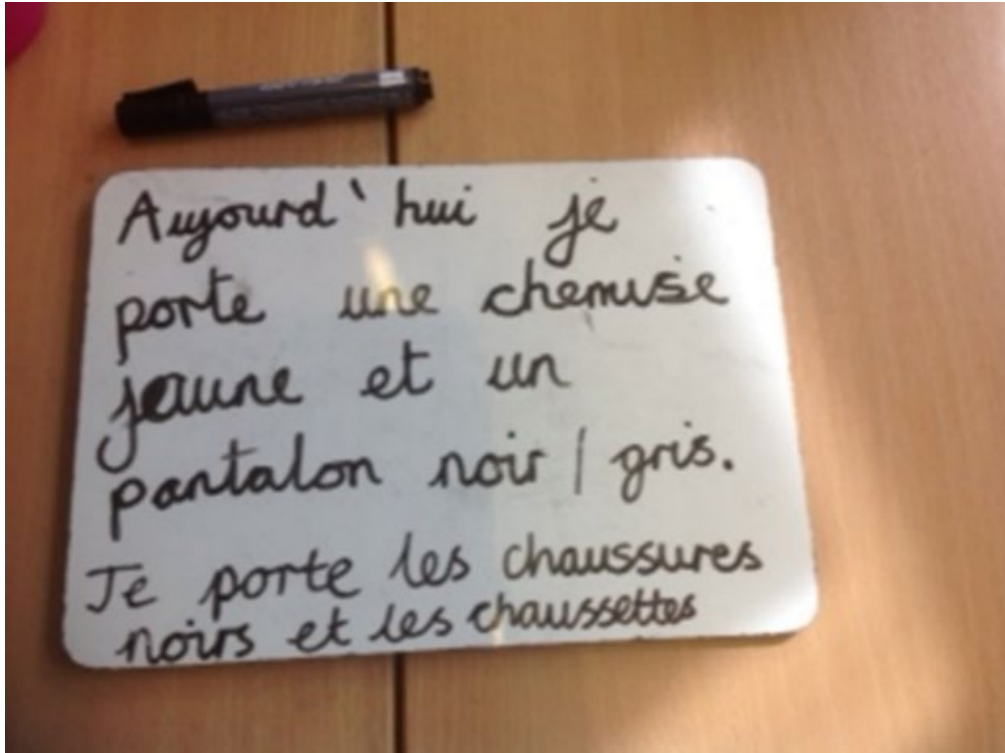 Aujourd'hui je
porte une chemise
jaune et un
pantalon noir / gris.
Je porte les chaussures
noirs et les chaussettes